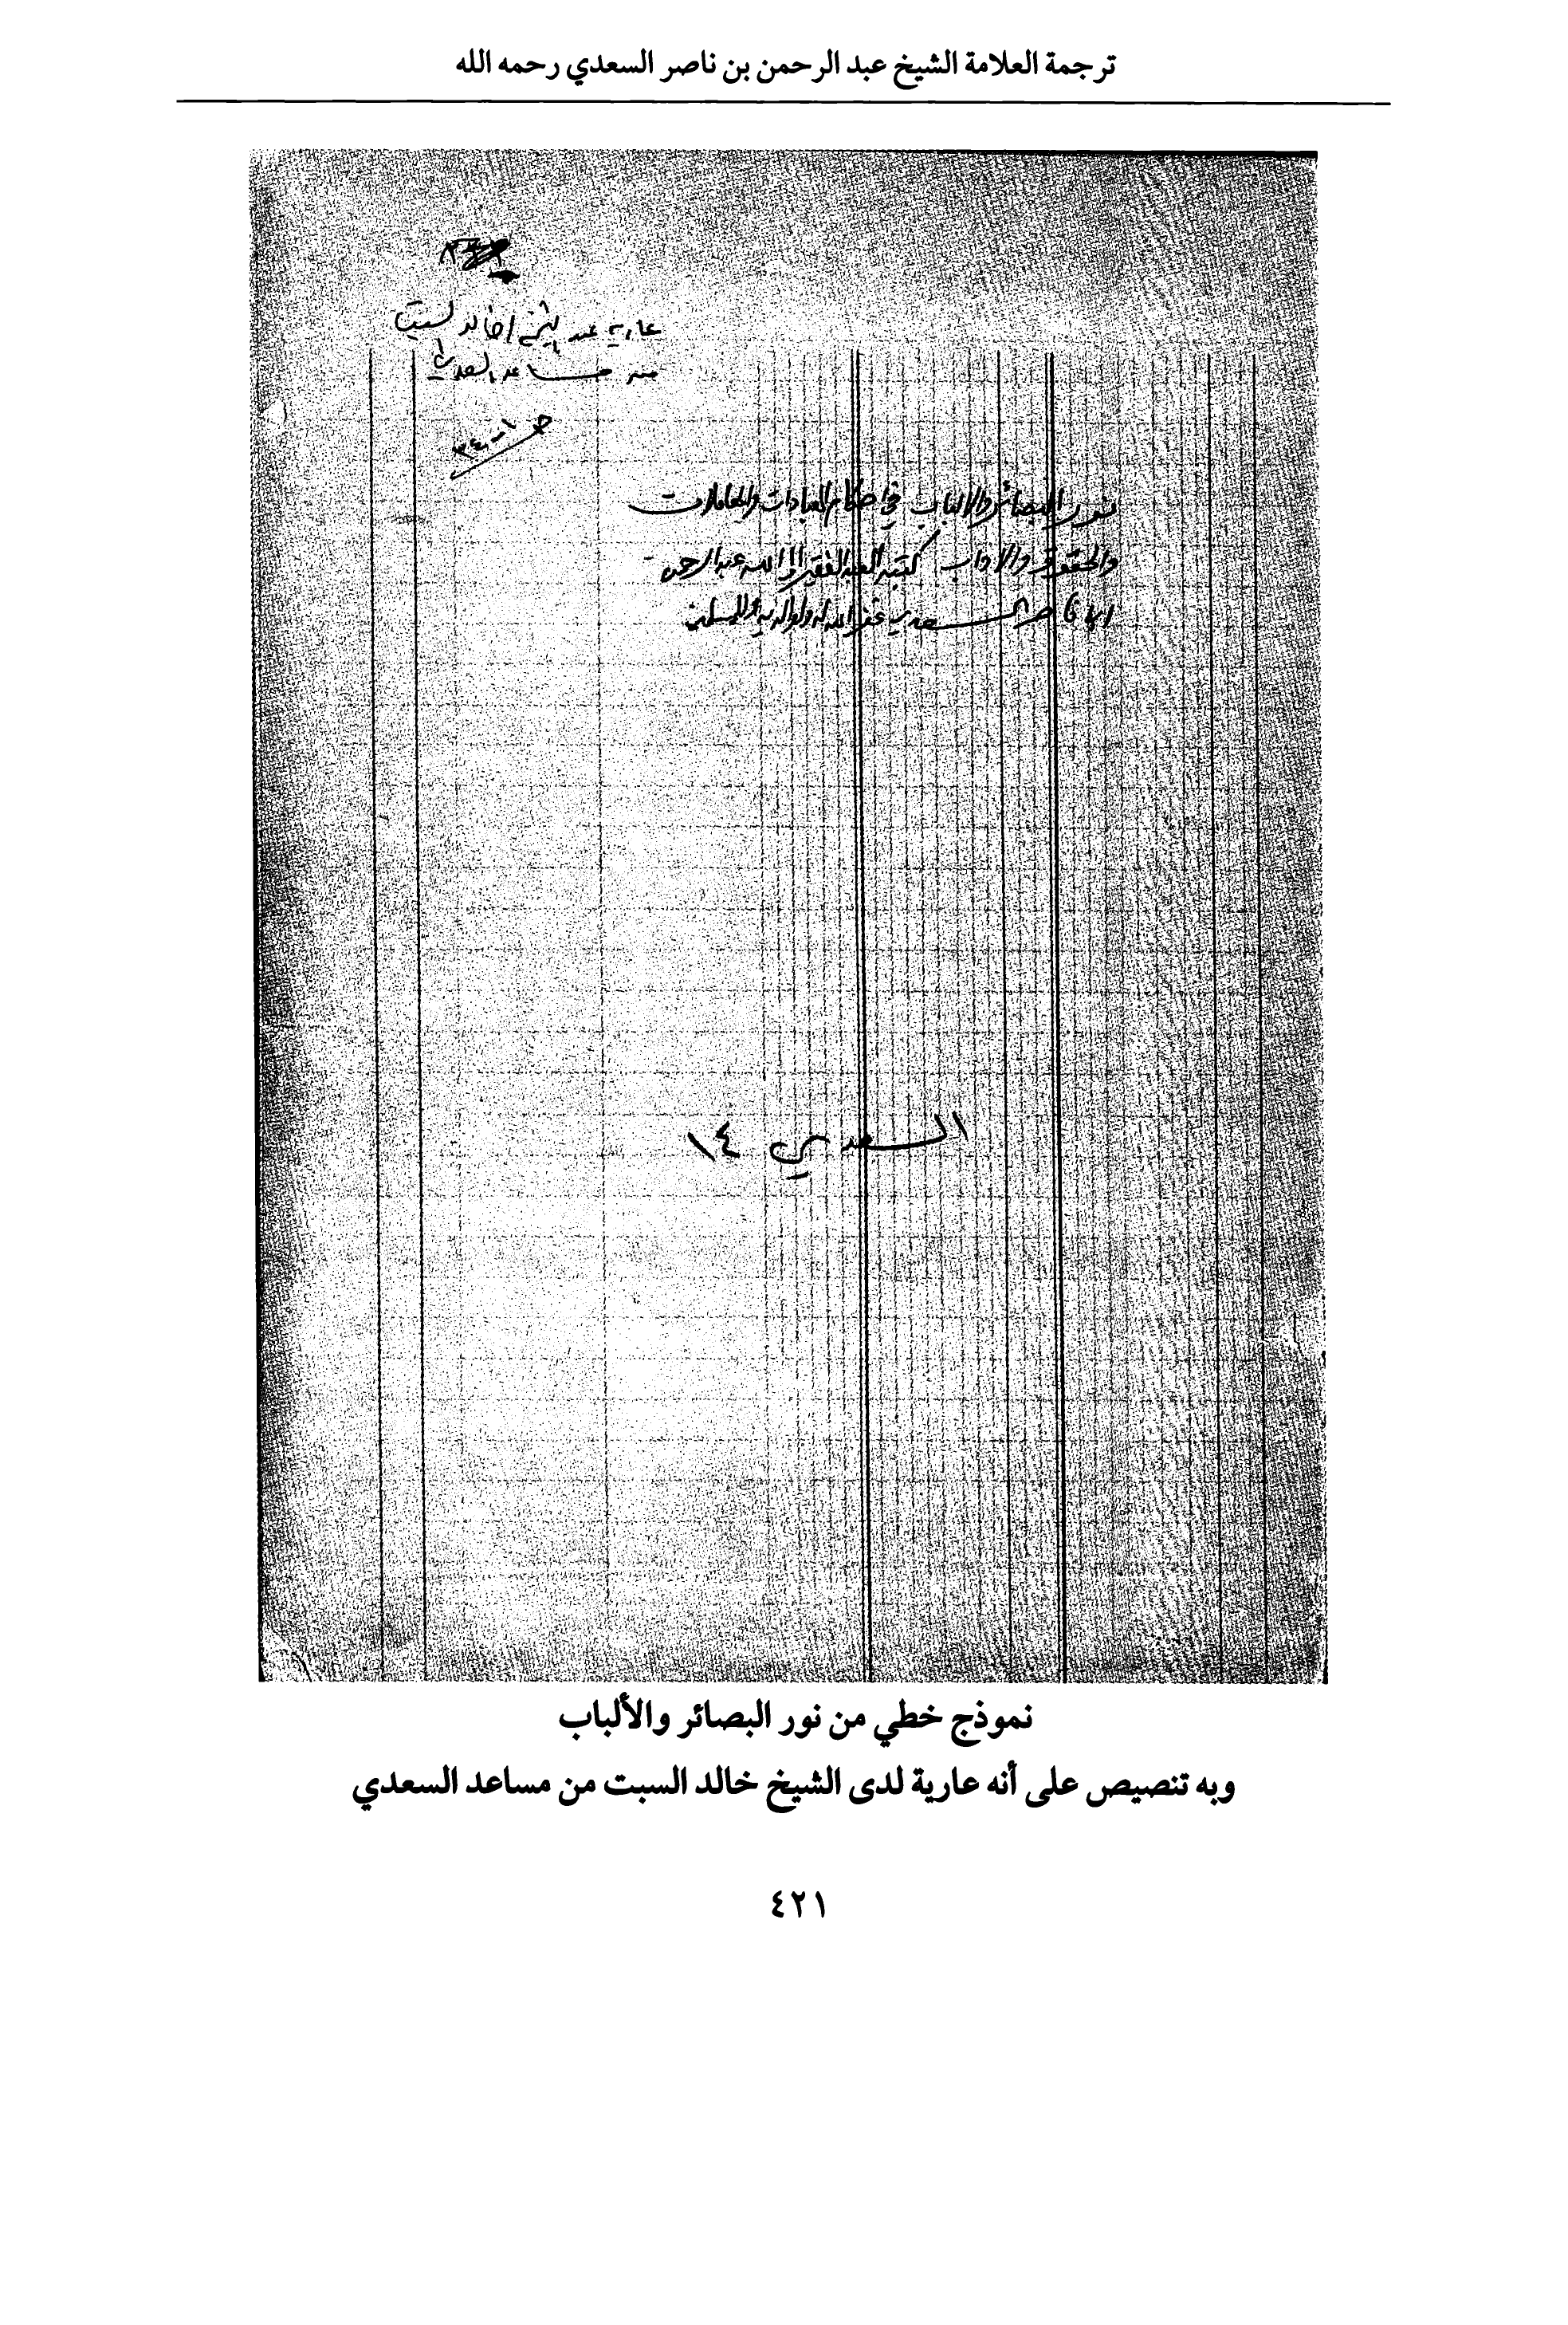 ترجمة العلامة الشيخ عبد الرحمن بن ناصر السعدي رحمه الله
عارية عند الشيخ خالد السبت
من مساعد السعدي
نور البصائر والالباب في احكام العبادات والمعاملات
والحقوق والاداب كتبه العبد الفقير الى الله عبد الرحمن
ابن ناصر السعدي غفر الله له ولوالديه وللمسلمين
السعدي ١٤
نموذج خطي من نور البصائر والألباب
وبه تنصيص على أنه عارية لدى الشيخ خالد السبت من مساعد السعدي
٤٢١